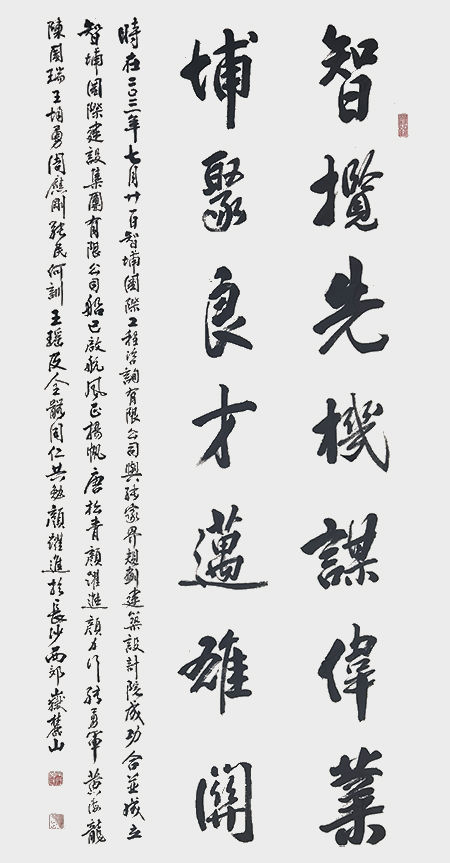 智攬先機謀偉業
埔聚良才邁雄關
時在二〇二一年七月廿日智埔國際工程咨詢有限公司與張家界規劃建築設計院成功合並成立
智埔國際建設集團有限公司船已啟航風正揚帆唐松青顏躍進顏 張勇軍黃海龍
陳國瑞王 勇周應剛張民何訓王瑤及全體同仁共勉顏躍進於長沙西郊嶽麓山